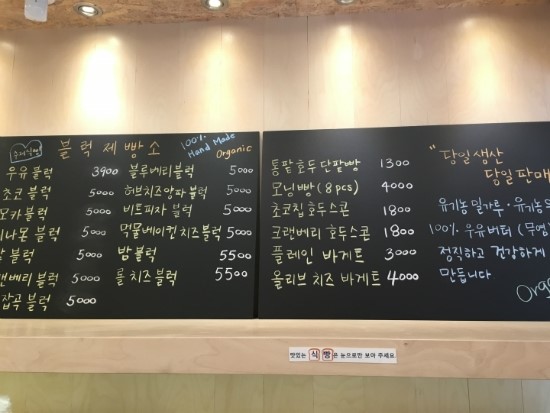 수제식빵 블럭제빵소 100% Hand Made Organic
우유 블럭 3900
초코 블럭 5000
모카 블럭 5000
나몬 블럭 5000
블럭 5000
베리 블럭 5000
잡곡 블럭 5000
블루베리블럭 5000
허브치즈양파블럭 5000
비트피자 블럭 5000
먹물베이컨치즈블럭 5000
밤블럭 5500
롤치즈블럭 5500
통팥호두단팥빵 1300
모닝빵 (8pcs) 4000
초코칩호두스콘 1800
크랜베리 호두스콘 1800
플레인 바게트 3000
올리브 치즈 바게트 4000
"당일생산
당일판매
유기농밀가루·유기농
100% 우유버터 (무염
정직하고 건강하게
만듭니다
Orga
맛있는 식빵은 눈으로만 보아 주세요.